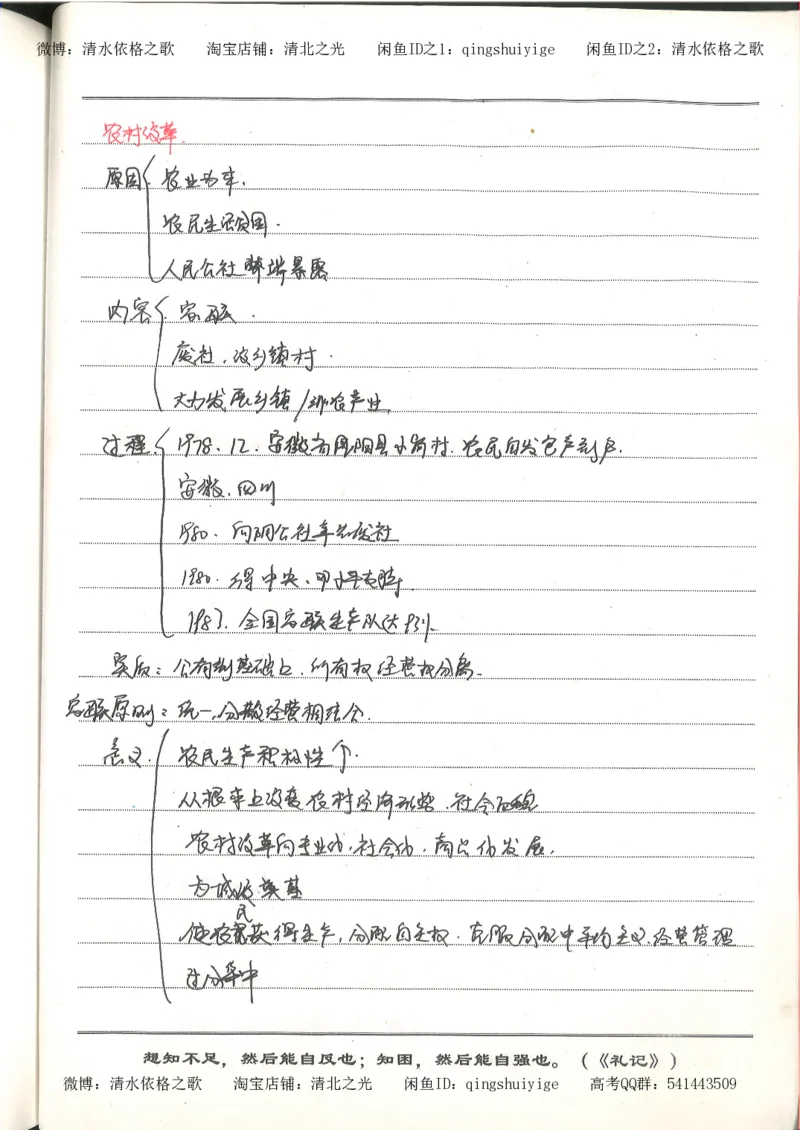 微博：清水依格之歌 淘宝店铺：清北之光 闲鱼ID之1：qingshuiyige 闲鱼ID之2：清水依格之歌
农村改革
原因 农业为本.
农民生活贫困.
人民公社弊端暴露
内容 家联.
废社.设乡镇村.
大力发展乡镇/ 产业.
过程 1978.12.安徽省凤阳县小岗村.农民自发包产到户.
安徽.四川
1980.向阳公社率先废社
1980.得中央、邓小平支持.
1983.全国家联生产队达93%
实质：公有制基础上.所有权经营权分离.
家联原则：统一.分散经营相结合.
意义. 农民生产积极性个.
从根本上改变农村经济形势.社会面貌
农村改革向专业化.社会化.商品化发展.
为城改奠基
使农民获得生产,分配自主权.克服分配中平均主义.经营管理
过分集中
想知不足，然后能自反也；知困，然后能自强也。（《礼记》）
微博：清水依格之歌 淘宝店铺：清北之光 闲鱼ID：qingshuiyige 高考QQ群：541443509